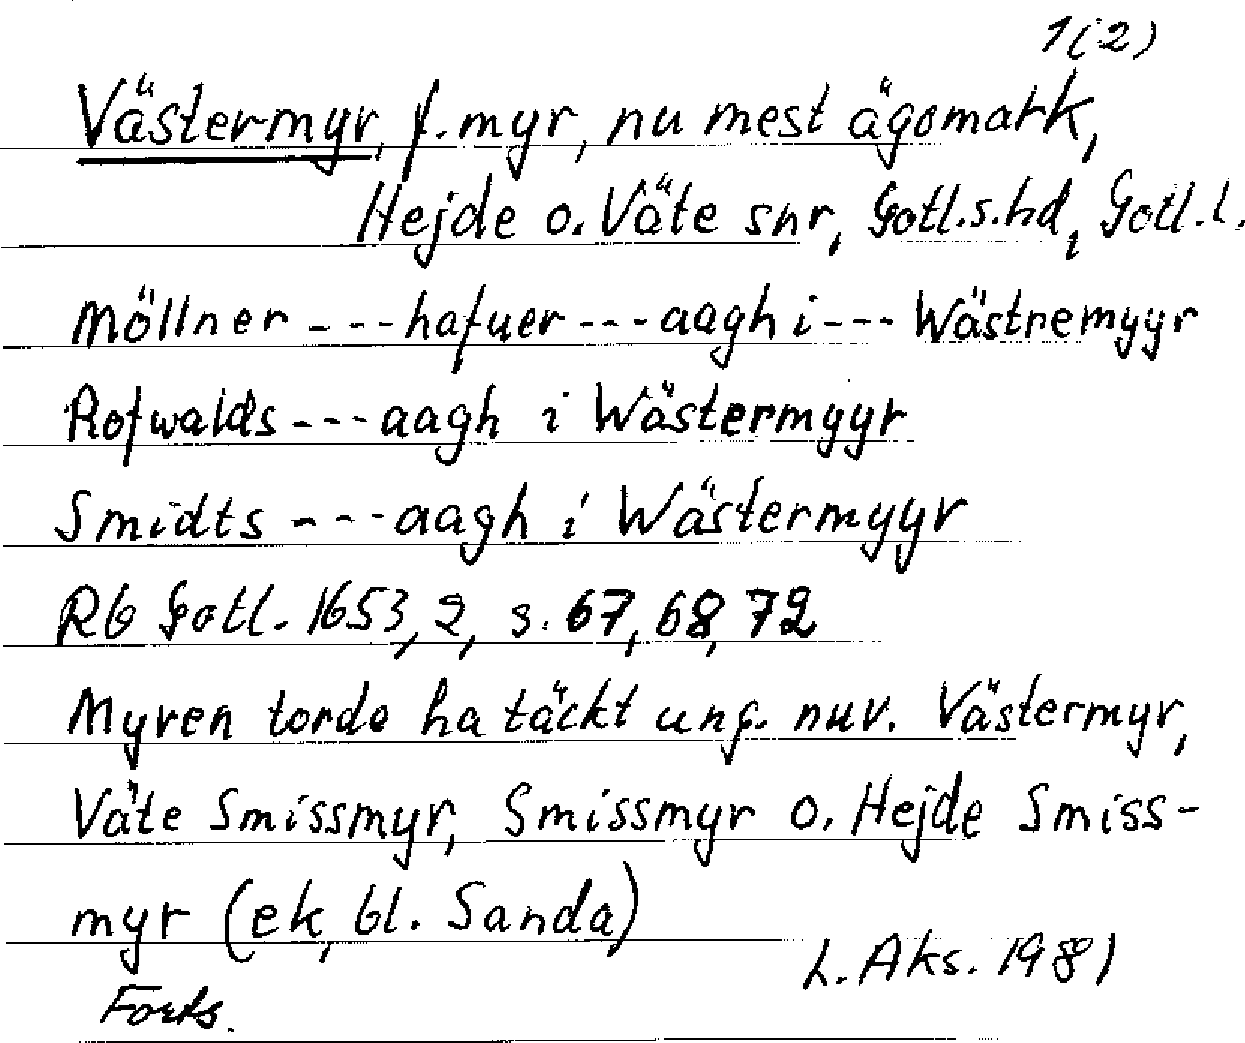 1(2)
Västermyr, f. myr, nu mest ägomark,
Hejde o. Väte snr, Gotl.s.hd, Gotl.l.
Möllner ---hafuer---aagh i--- Wästremyyr
Rofwalds---aagh i Wästermyyr
Smidts ---aagh i Wästermyyr
Rb Gotl. 1653, 2, s. 67, 68, 72
Myren torde ha täckt ung. nuv. Västermyr,
Väte Smissmyr, Smissmyr o. Hejde Smiss-
myr (ek, bl. Sanda)
L. Aks. 1981
Forts.